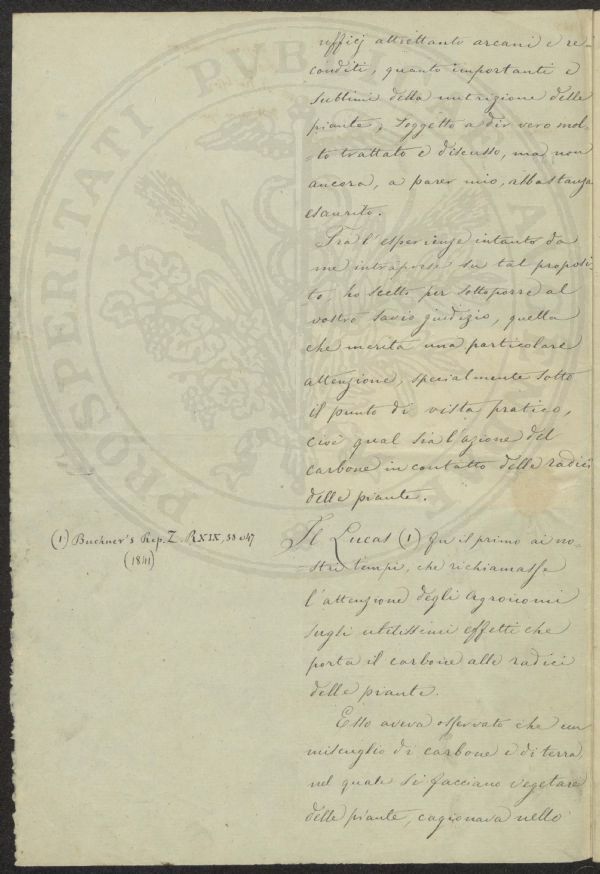 PROSPERITATI PVB
ufficj altrettanto arcani e re-
conditi, quanto importanti e
sublimi della nutrizione delle
piante; soggetto a dir vero mol-
-to trattato e discusso, ma non
ancora, a parer mio, abbastanza
esaurito.
Fra l'esperienze intanto da
me intraprese su tal proposi-
to, ho scelto per sottoporre al
vostro savio giudizio, quella
che merita una particolare
attenzione, specialmente sotto
il punto di vista pratico,
cioè qual sia l'azione del
carbone in contatto delle radici
delle piante.
(1) Buchner's Rep. Z. RXIX, 38
(1841)
Il Lucas (1) fu il primo ai no-
stri tempi, che richiamasse
l'attenzione degli Agronomi
sugli utilissimi effetti che
porta il carbone alle radici
delle piante.
Esso aveva osservato che un
miscuglio di carbone e di terra,
nel quale si facciano vegetare
delle piante, cagionava nello